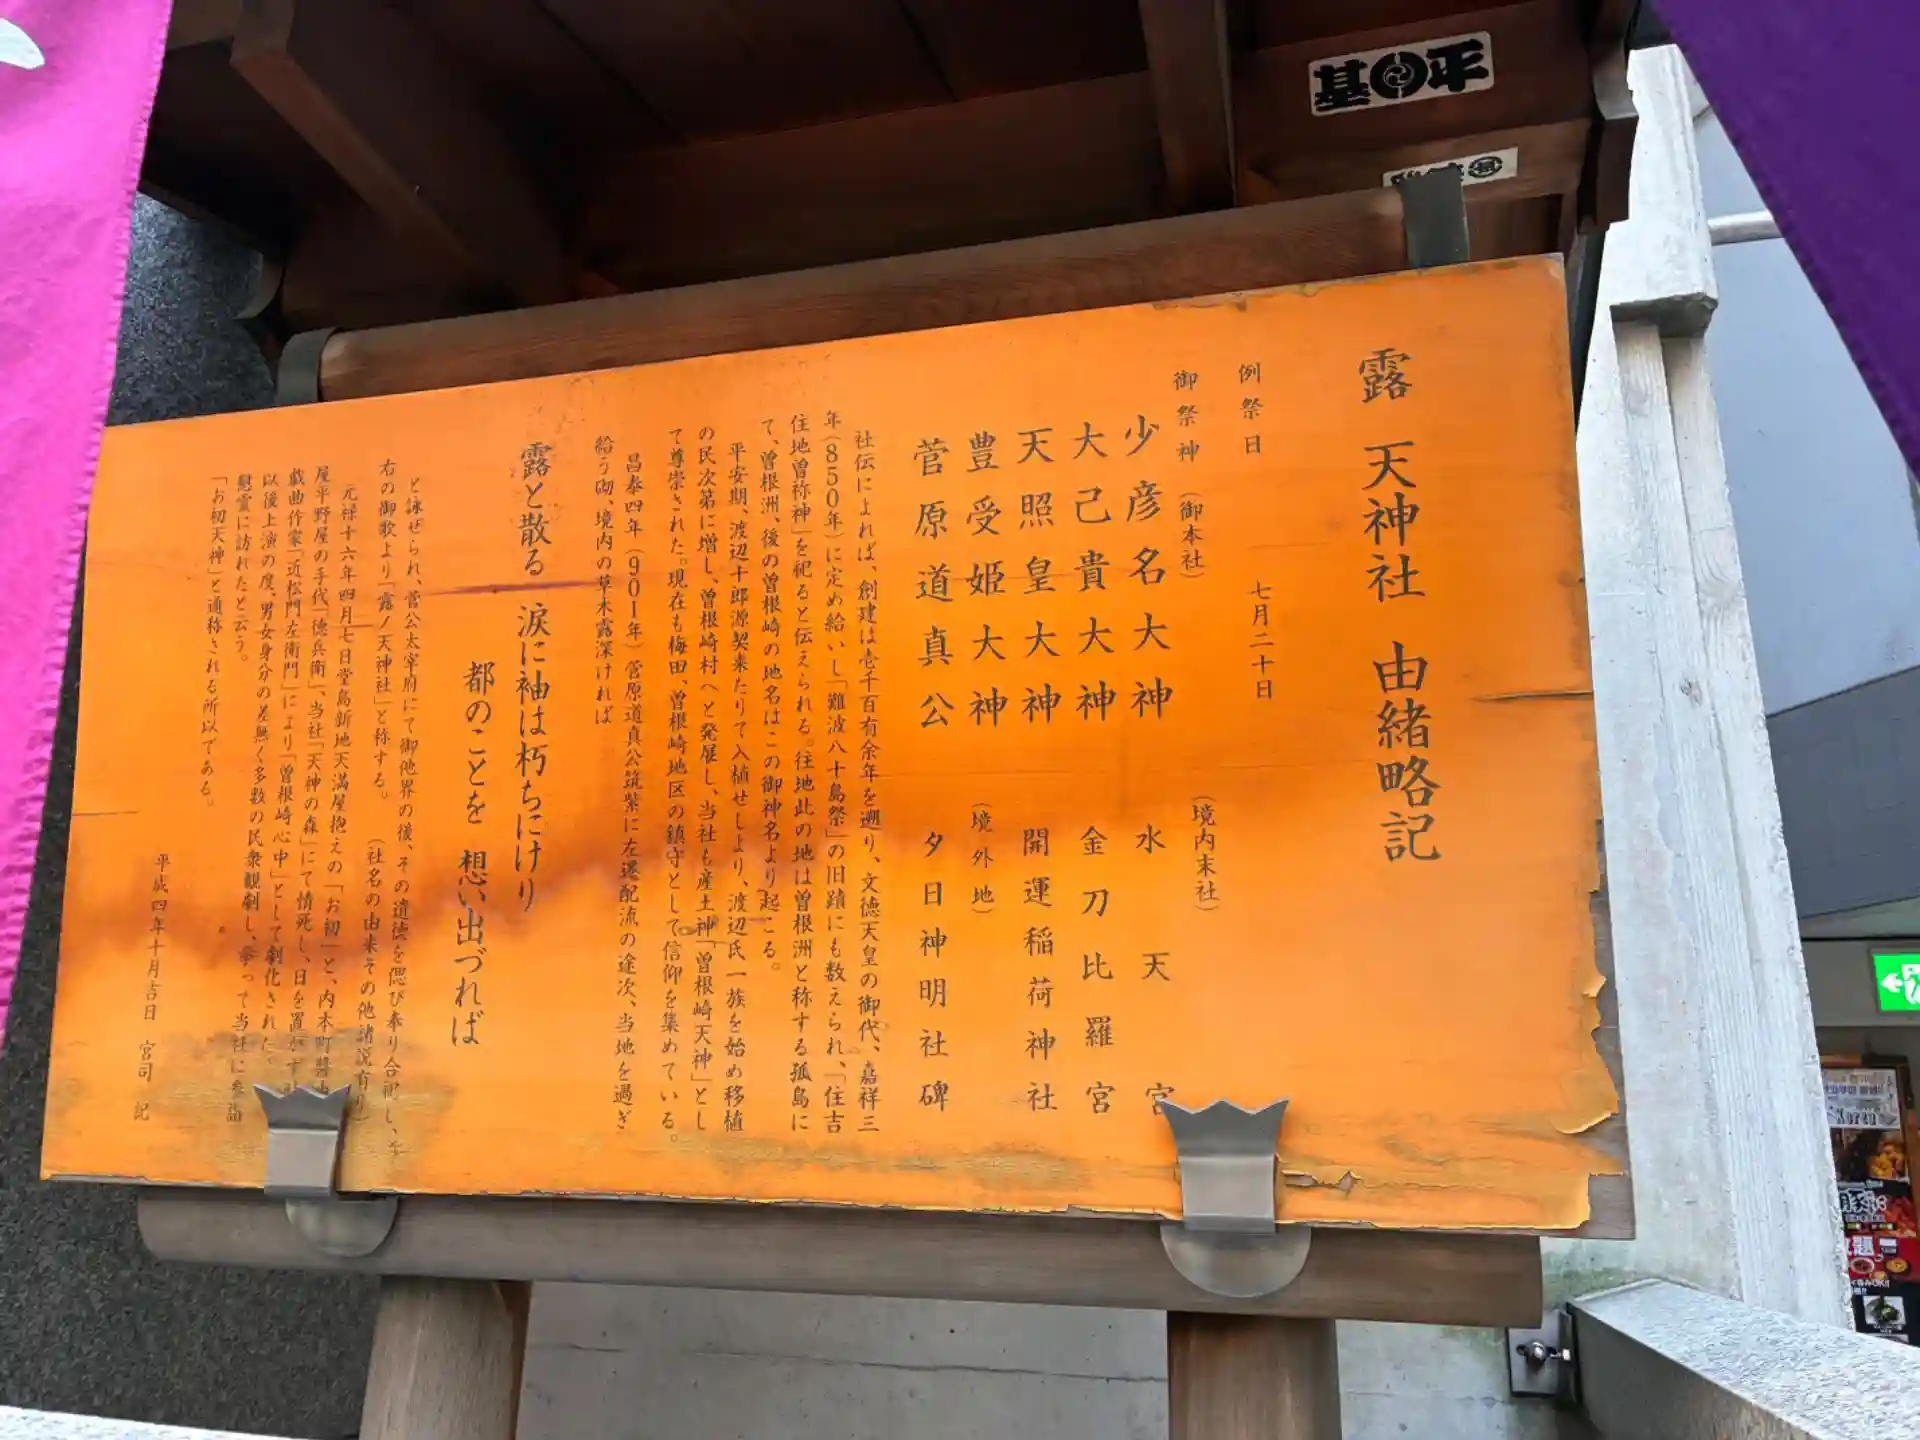 露 天神社 由緒略記
例祭日 七月二十日
御祭神(御本社)
少彦名大神
大己貴大神
天照皇大神
豊受姫大神
菅原道真公
(境内末社)
水天宮
金刀比羅宮
開運稲荷神社
(境外地)
夕日神明社碑
社伝によれば、創建は壱千百有余年を遡り、文徳天皇の御代、嘉祥三
年(850年)に定め給いし「難波八十島祭」の旧蹟にも数えられ、「住吉
住地曽祢神」を祀ると伝えられる。往地此の地は曽根洲と称する孤島に
て、曽根洲、後の曽根崎の地名はこの御神名より起こる。
平安期、渡辺十郎源契来たりて入植せしより、渡辺氏一族を始め移植
の民次第に増し、曽根崎村へと発展し、当社も産土神「曽根崎天神」とし
て尊崇された。現在も梅田、曽根崎地区の鎮守として信仰を集めている。
昌泰四年(901年)菅原道真公筑紫に左遷配流の途次、当地を過ぎ
給う砌、境内の草木露深ければ
露と散る 涙に袖は朽ちにけり
都のことを 想い出づれば
と詠ぜられ、菅公太宰府にて御他界の後、その遺徳を偲び奉り合祀し、
右の御歌より「露ノ天神社」と称する。 (社名の由来その他諸説有り)
元禄十六年四月七日堂島新地天満屋抱えの「お初」と、内本町醬
屋平野屋の手代「徳兵衛」、当社「天神の森」にて情死し、日を置かず
戯曲作家「近松門左衛門」により「曽根崎心中」として劇化された。
以後上演の度、男女身分の差無く多数の民衆観劇し、挙って当社に参詣
慰霊に訪れたと云う。
「お初天神」と通称される所以である。
平成四年十月吉日 宮司 記
基 平